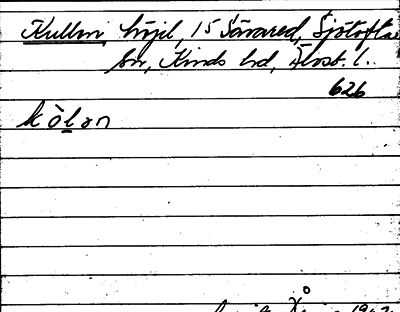 Kullen, höjd, 15 Sävared, Sjötofta
sn, Kinds hd, Älvsb. l.
626
kòlan
1942